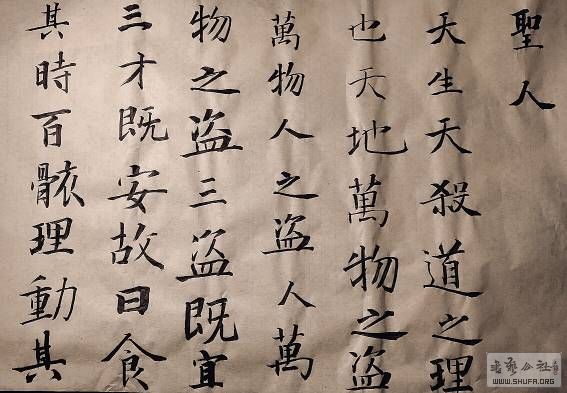 聖人
天生天殺道之理
也天地萬物之盜
萬物人之盜人萬
物之盜三盜既宜
三才既安故曰食
其時百骸理動其
WWW.SHUFA.ORG